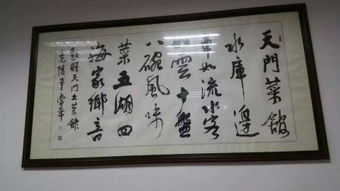 天門菜館
水庫邊
車如流水客
如雲十盤
八碗風味
菜五湖四
海家鄉音
天門土菜館